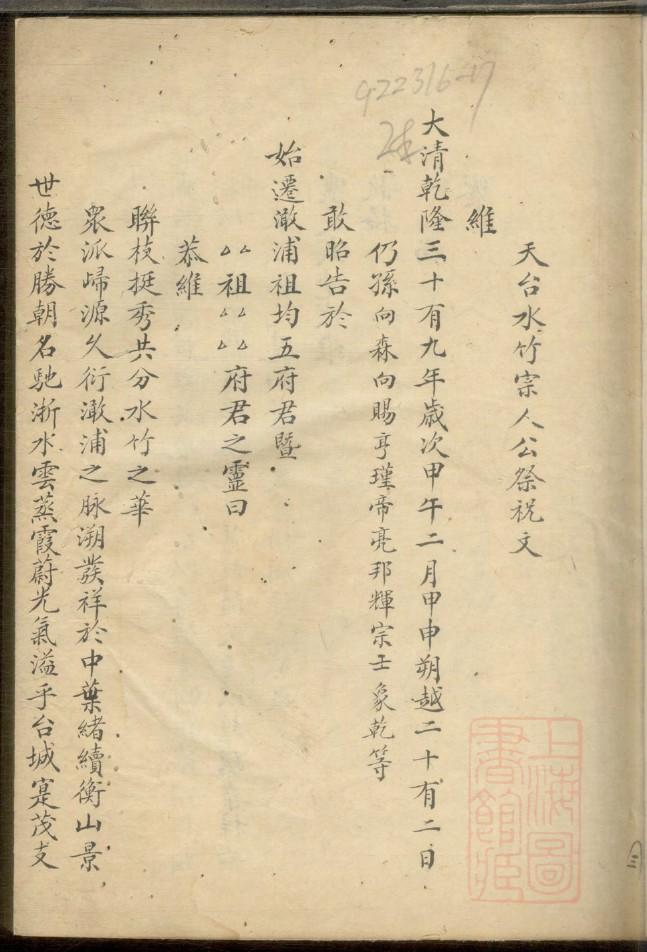 天台水竹宗人公祭祝文
維
大清乾隆三十有九年歲次甲午二月甲申朔越二十有二日
仍孫向森向賜亨瑾帝亮邦輝宗士象乾等
敢昭告於
始遷澉浦祖均五府君暨
厶厶祖厶厶府君之靈曰
恭維
聯枝挺秀共分水竹之華
衆派歸源久衍澉浦之脉溯發祥於中葉緒續衡山景
世德於勝朝名馳浙水雲蒸霞蔚光氣溢乎台城寔茂支
922316-17
上海圖
書館藏
三